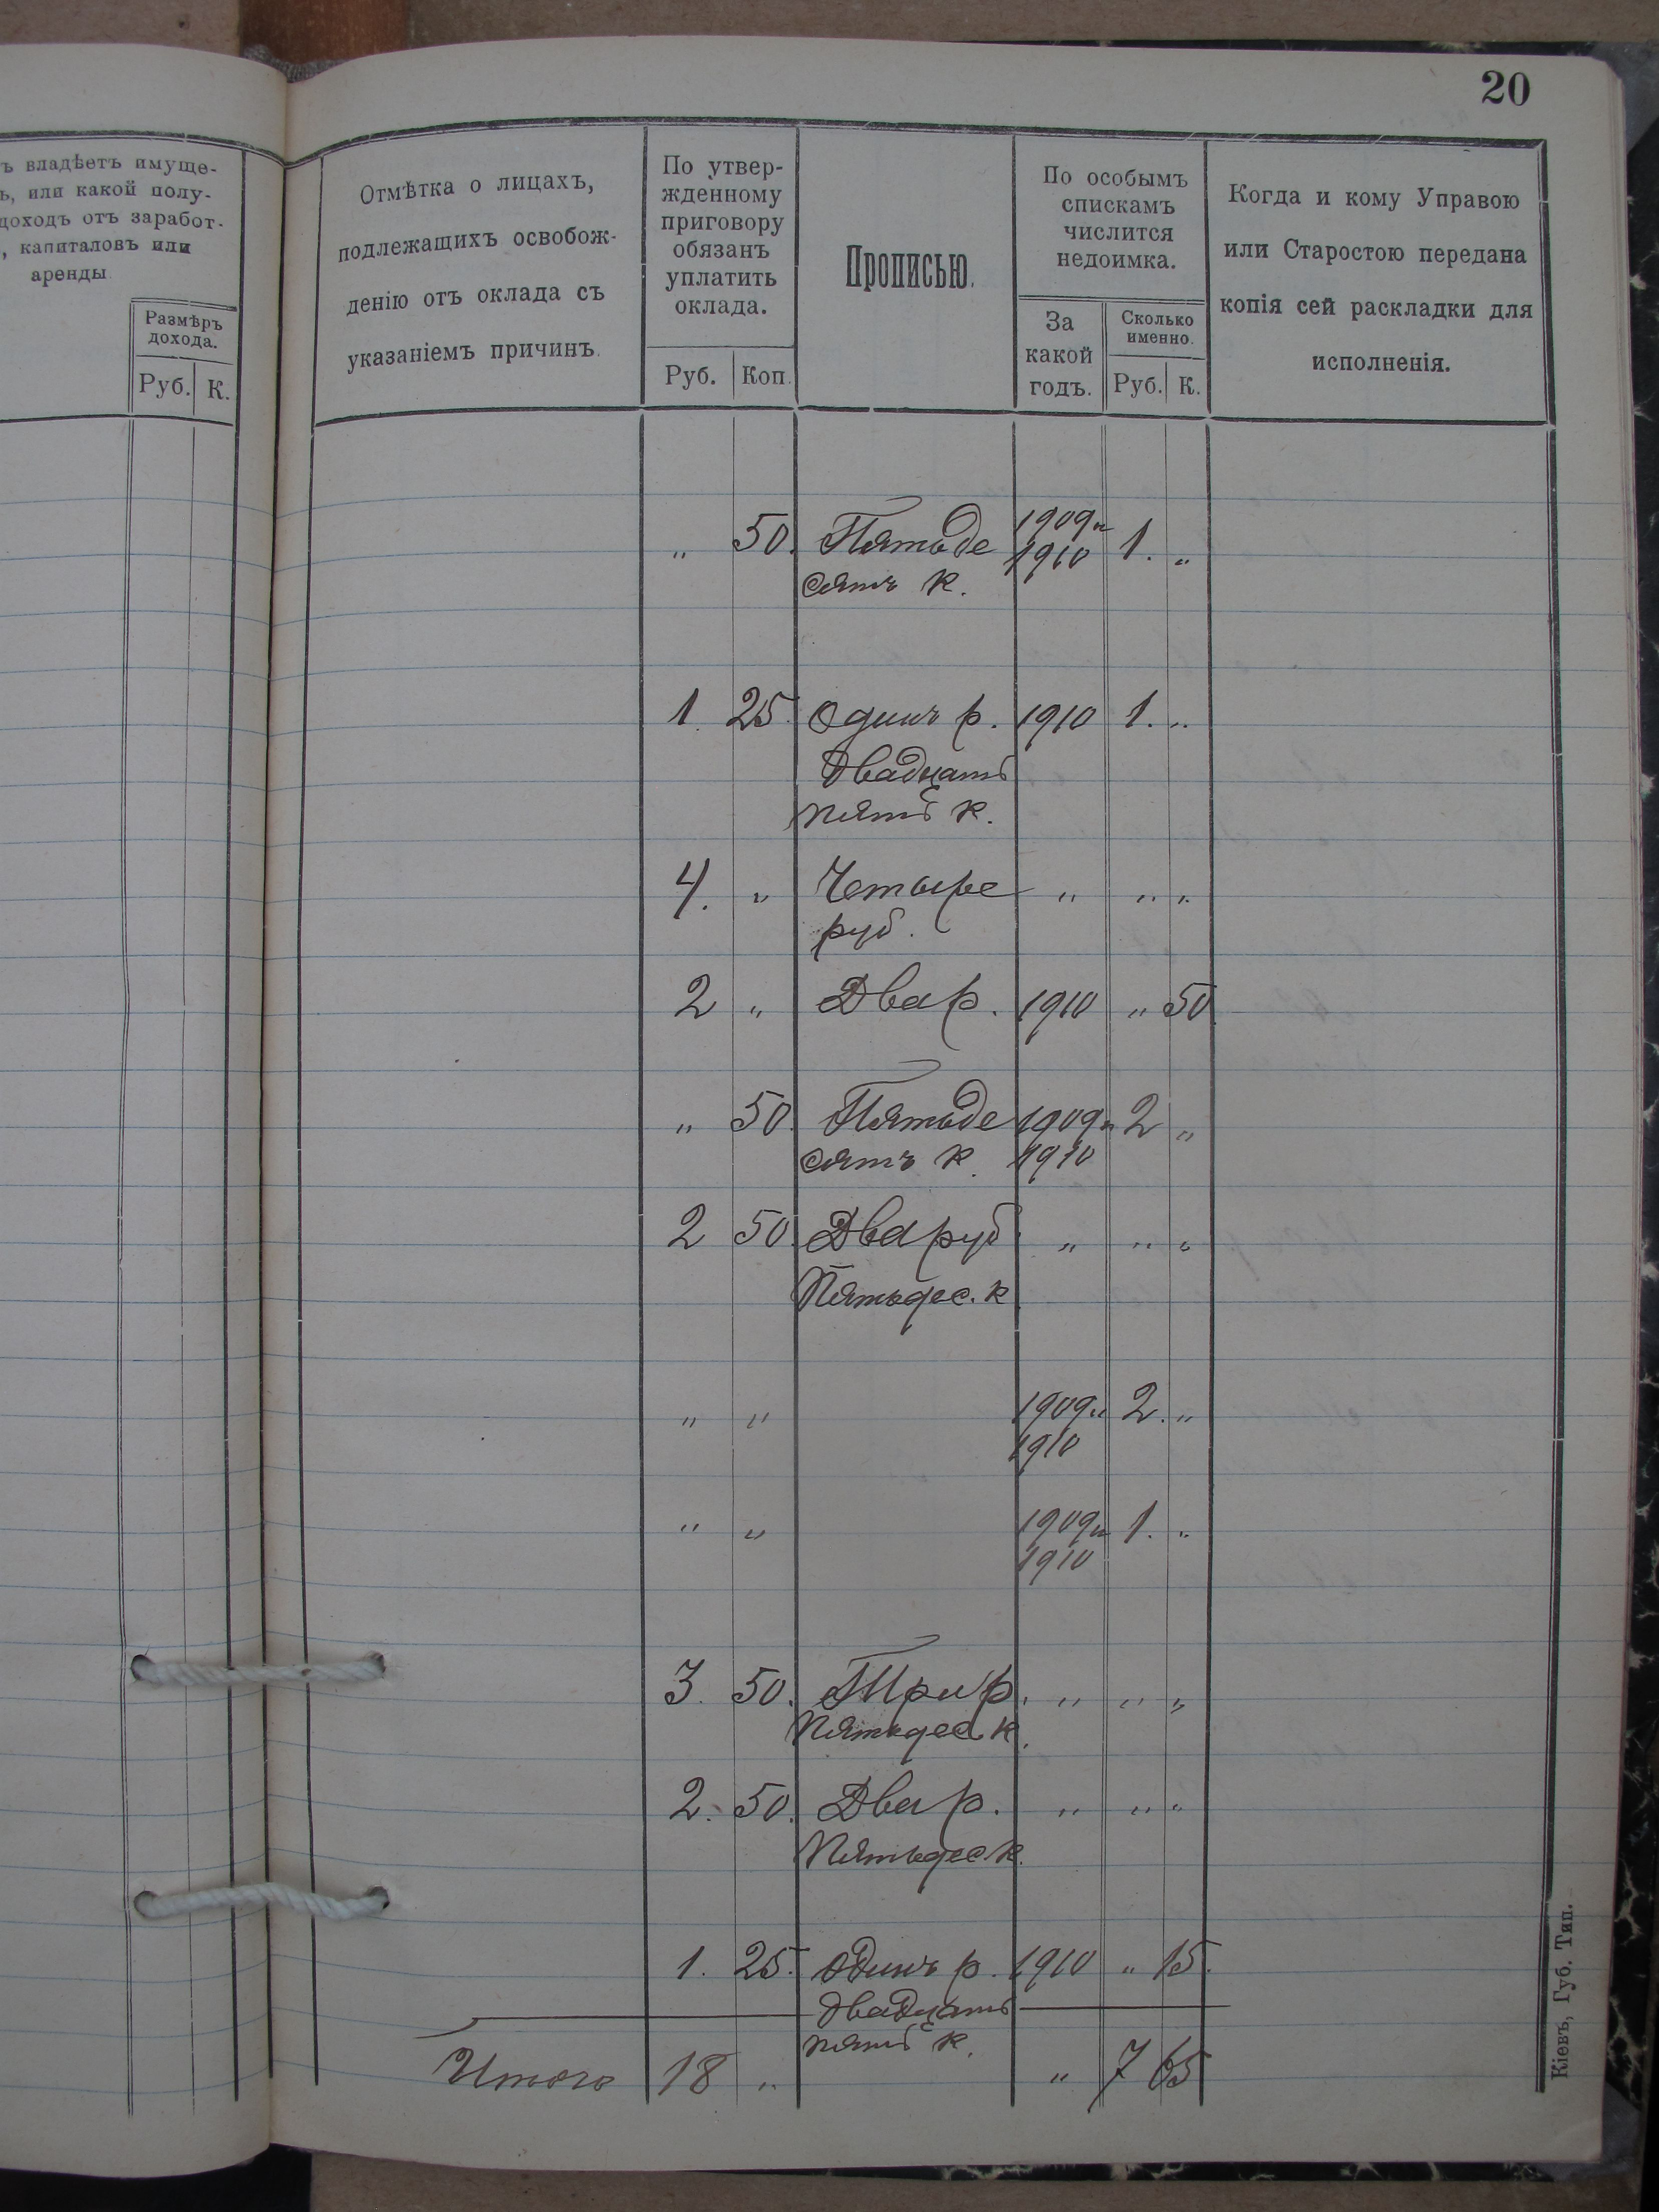 20
ъ владѣетъ имуще-
ь, или какой полу-
доходъ отъ заработ-
, капиталовъ или
аренды
Размѣръ
дохода.
Руб. К.
Отмѣтка о лицахъ,
подлежащихъ освобож-
денію отъ оклада съ
указаніемъ причинъ.
По утвер-
жденному
приговору
обязанъ
уплатить
оклада.
Руб. Коп.
Прописью.
По особымъ
спискамъ
числится
недоимка.
За
какой
годъ.
Сколько
именно.
Руб. К.
Когда и кому Управою
или Старостою передана
копія сей раскладки для
исполненія.
„ 50. Пятьде 1909 и 1910 1. „
сятъ к.
1 25. Одинъ р. 1910 1. „
двадцать
пять к.
4. „ Четыре „ „ „
руб.
2 „ Два р. 1910 „ 50
„ 50. Пятьде 1909 и 2 „
сятъ к. 1910
2 50. Два руб „ „ „
Пятьдес. к
„ „ 1909 и 2. „
1910
„ „ 1909 и 1. „
1910
3. 50. Три р. „ „ „
Пятьдес к.
2. 50. Два р. „ „ „
Пятьдес к.
1. 25. Одинъ р. 1910 „ 15.
двадцать
пять к.
Итого 18 „ „ 7 65
Кіевъ, Губ. Тип.